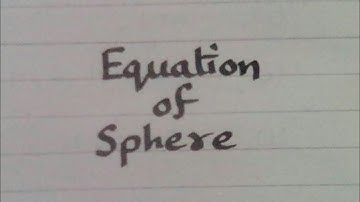 Equation
of
Sphere